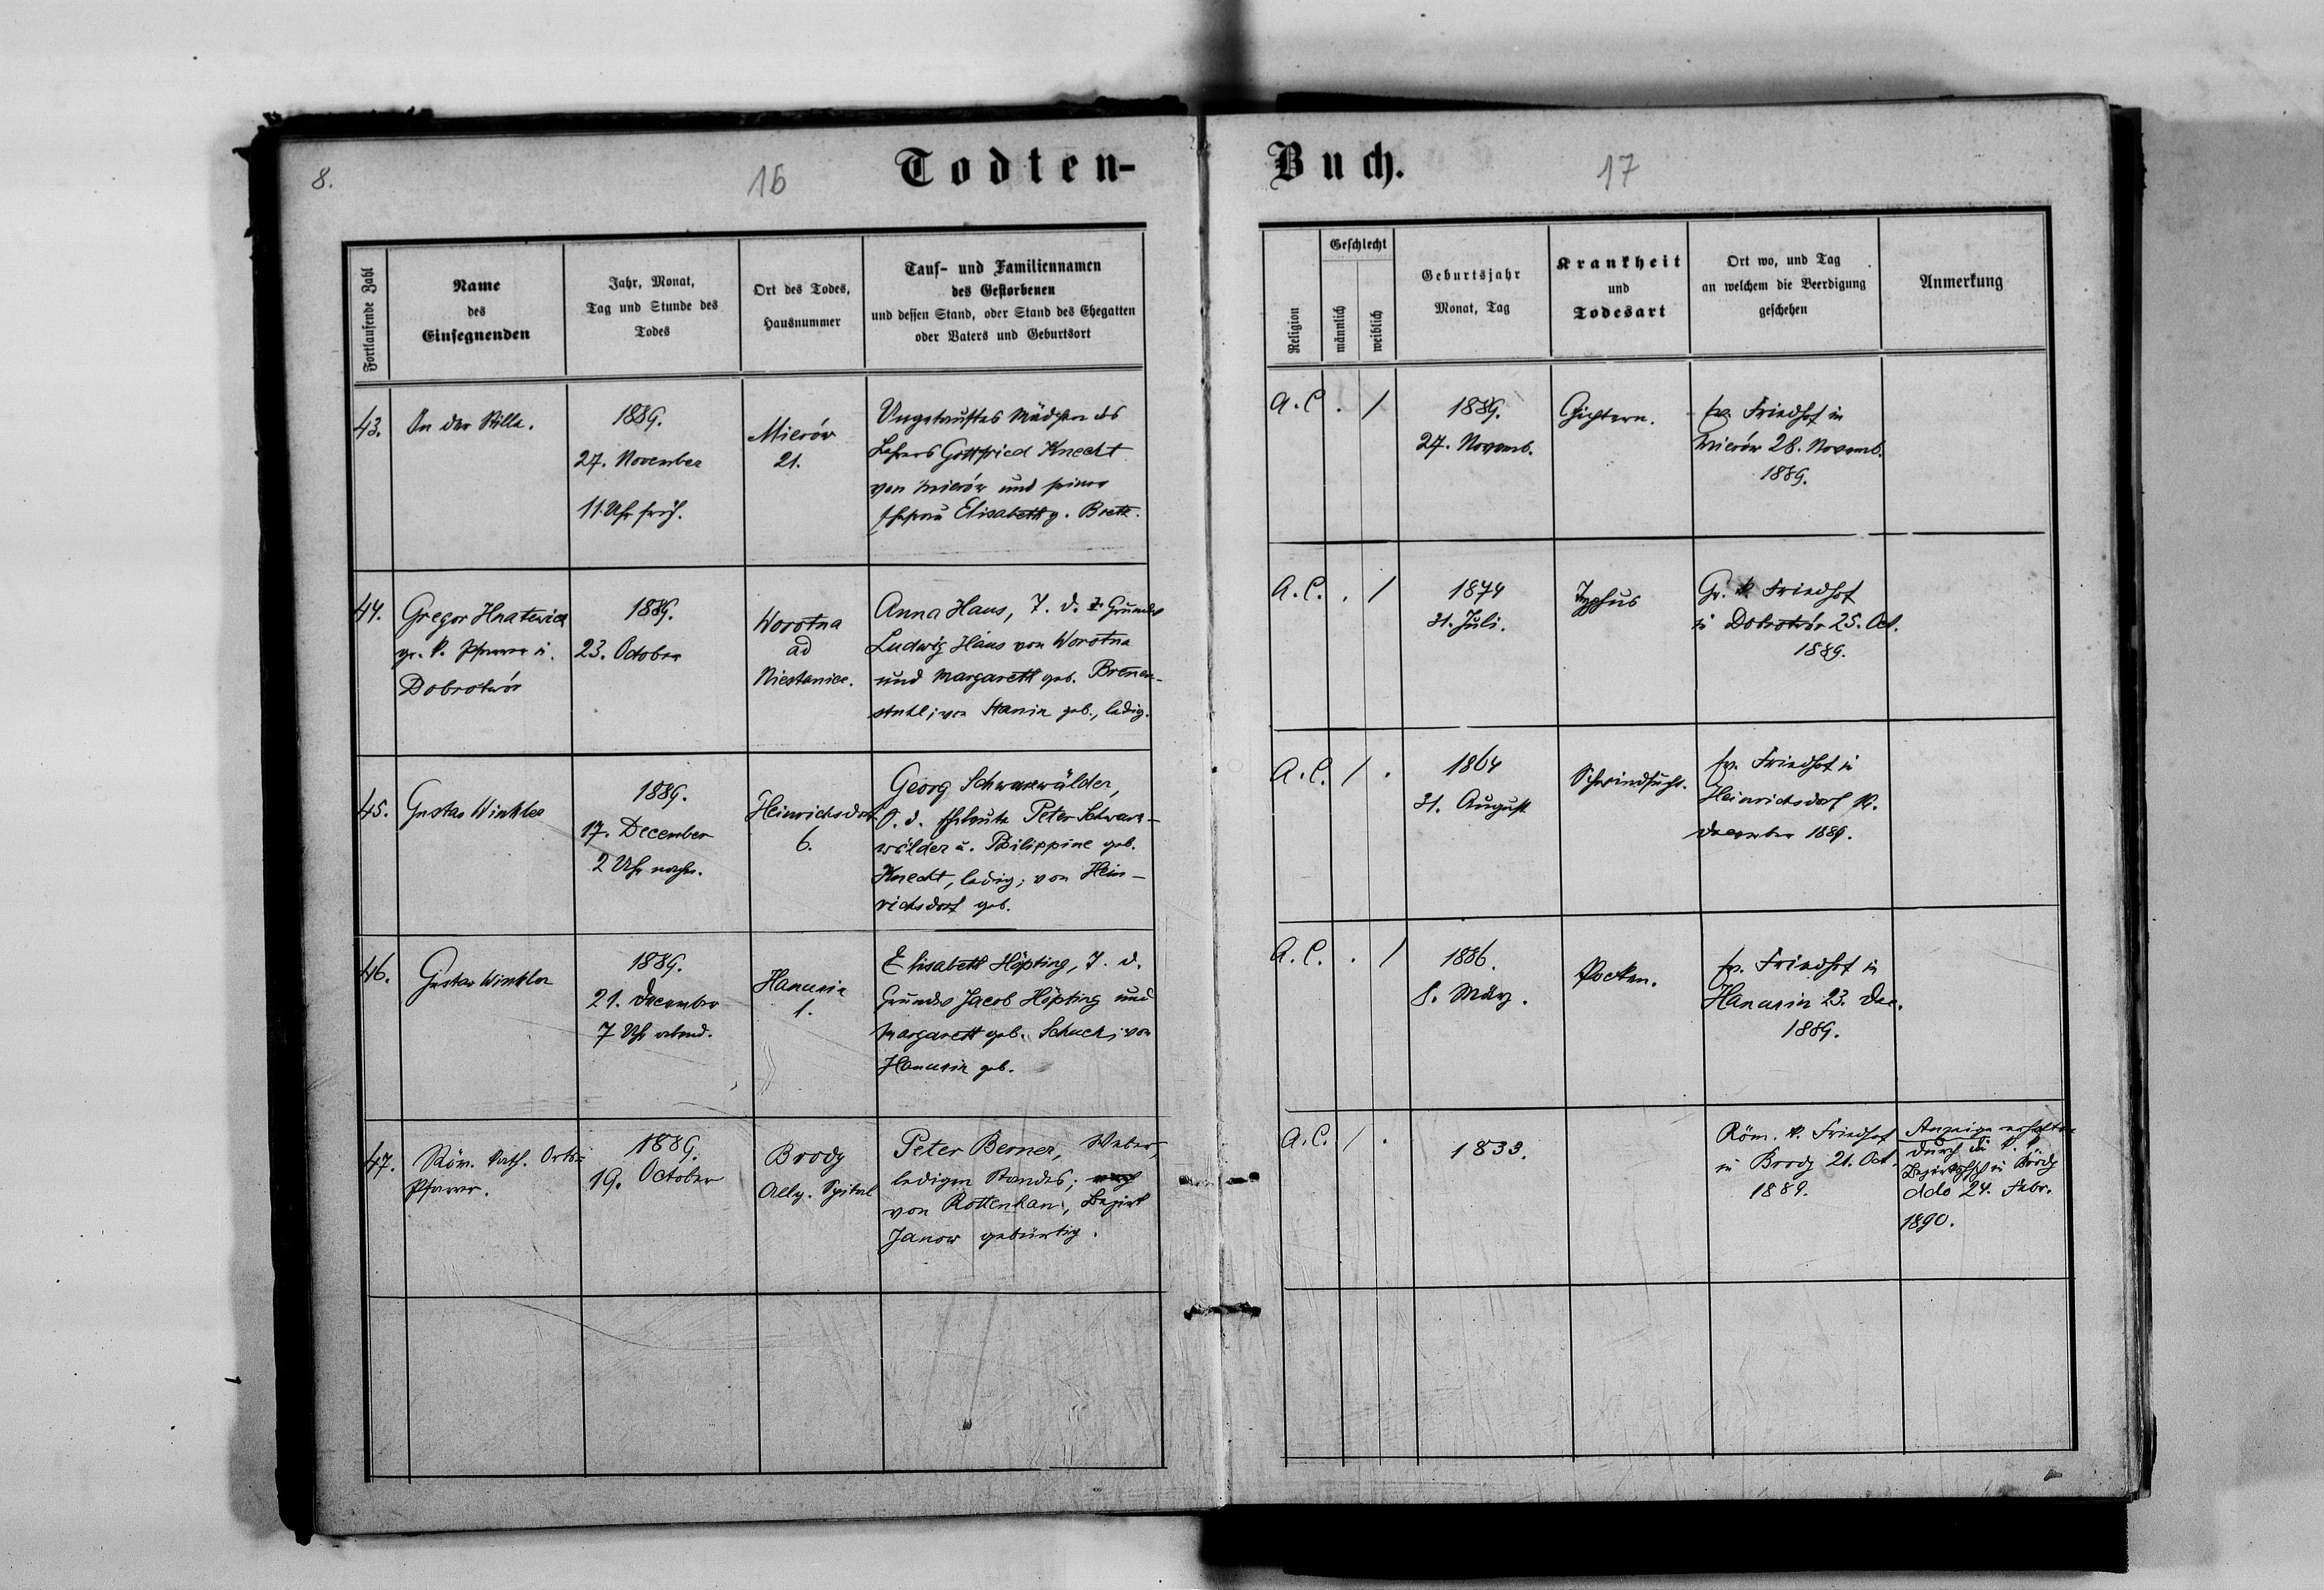 8.
16
Todten-
Buch.
17
Fortlaufende Zahl
Name
des
Einsegnenden
Jahr, Monat,
Tag und Stunde des
Todes
Ort des Todes,
Hausnummer
Tauf- und Familiennamen
des Gestorbenen
und dessen Stand, oder Stand des Ehegatten
oder Vaters und Geburtsort
Religion
Geschlecht
männlich
weiblich
Geburtsjahr
Monat, Tag
Krankheit
und
Todesart
Ort wo, und Tag
an welchem die Beerdigung
geschehen
Anmerkung
43.
In der Stille.
1889.
27. November
11 Uhr früh.
Mierów
21.
Ungetauftes Mädchen des
Lehrers Gottfried Knecht
von Mierów und seiner
Ehefrau Elisabeth g.
A. C. . /
1889.
27. Novemb.
Gichtern.
ev. Friedhof in
Mierów 28. Novemb.
1889.
44.
Gregor Hnatewicz
gr. k. Pfarrer in
Dobrotwór
1889.
23. October
Worotna
ad
Niestanice.
Anna Haus, T. d. Grundw
Ludwig Haus von Worotna
und Margareth geb. Brenn-
stuhl; von Stanin geb., ledig.
A. C. . /
1874
31. Juli.
Typhus
Gr. k. Friedhof
in Dobrotwór 25. Oct.
1889.
45.
Gustav Winkler
1889.
17. December
2 Uhr nachm.
Heinrichsdorf
6.
Georg Schwarzwälder,
S. d. Eheleute Peter Schwarz-
wälder u. Philippine geb.
Knecht, ledig; von Hein-
richsdorf geb.
A. C. / .
1864
31. August
Schwindsucht.
ev. Friedhof in
Heinrichsdorf
December 1889.
46.
Gustav Winkler
1889.
21. December
7 Uhr abend.
Hanunin
1.
Elisabeth Höpfing, T. d.
Grundw Jacob Höpfing und
Margareth geb. Schuck; von
Hanunin geb.
A. C. . /
1886.
8. März.
Pocken.
ev. Friedhof in
Hanunin 23. Dec.
1889.
47.
Röm. kath. Orts-
Pfarrer.
1889.
19. October
Brody
Allg. Spital
Peter Berner, Weber,
ledigen Standes;
von Rottenhan, Bezirk
Janow gebürtig.
A. C. / .
1833.
Röm. k. Friedhof
in Brody 21. Oct.
1889.
Anzeige erhalten
durch die k. k.
in Brody
ddo 24. Febr.
1890.